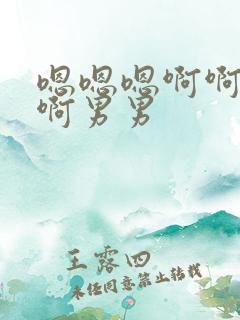 嗯嗯嗯啊啊
啊男男
王露四
未经同意禁止转载